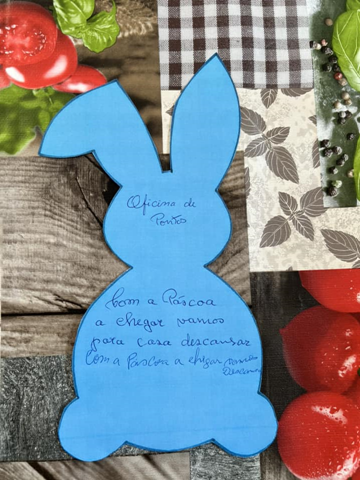 Oficina de
Pontos
Com a Páscoa
a chegar vamos
para casa descansar
Com a Páscoa a chegar vamos
Descansar